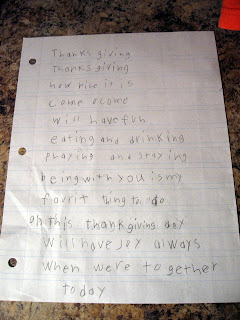 Thanks giving
Thanks giving
how nice it is
Come ocome
will have fun
eating and drinking
playing and staying
being with you is my
favrit thing to do
on this thanksgiving day
Will have joy always
When we're together
today